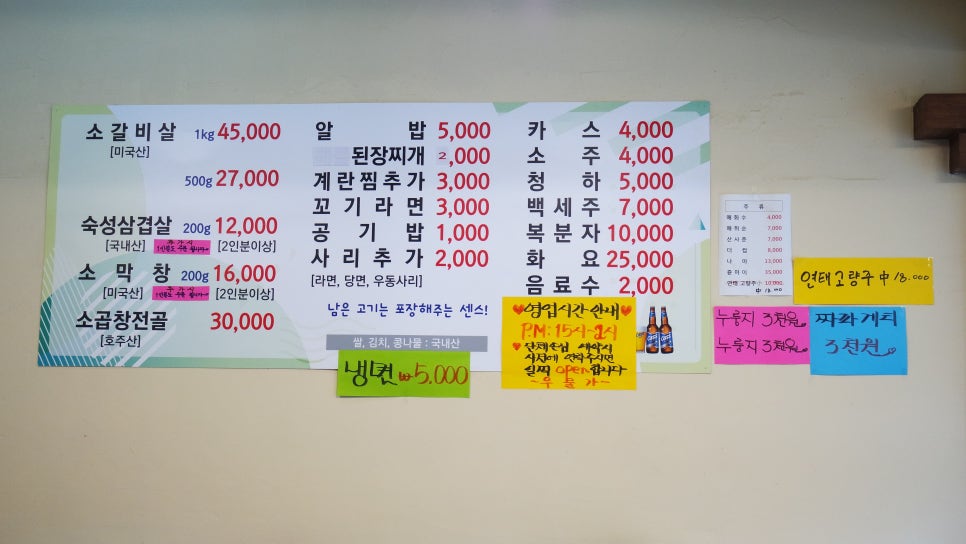 소갈비살 1kg 45,000
[미국산]
500g 27,000
숙성삼겹살 200g 12,000
[국내산] 추가시 [2인분이상]
소막창 200g 16,000
[미국산] 추가시 [2인분이상]
소곱창전골 30,000
[호주산]
알밥 5,000
된장찌개 2,000
계란찜추가 3,000
꼬기라면 3,000
공기밥 1,000
사리추가 2,000
[라면, 당면, 우동사리]
남은 고기는 포장해주는 센스!
쌀, 김치, 콩나물 : 국내산
냉면 ₩5.000
카스 4,000
소주 4,000
청하 5,000
백세주 7,000
복분자 10,000
화요 25,000
음료수 2,000
영업시간 안내
P.M: 15시~2시
단체손님 예약시
사전에 연락주시면
일찍 open 합니다
~우물가~
주 류
매화수 4,000
매취순 7,000
산사춘 7,000
더찹 8,000
나마 13,000
중마이 35,000
연태고량주 小 10,000
中 18.000
연태고량주 中 18.000
누룽지 3천원
누룽지 3천원
짜파게티
3천원